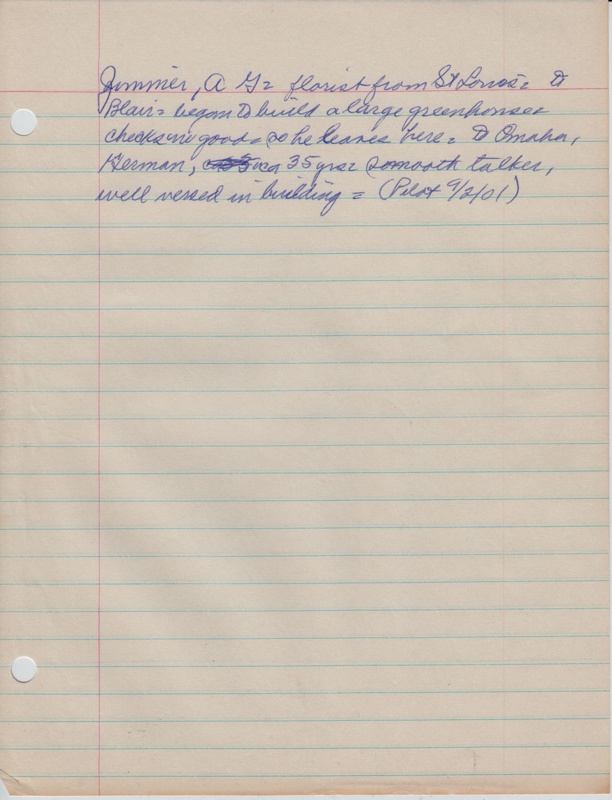 Zimmer, A G = florist from St Louis = to
Blair = began to build a large greenhouse =
checks no good = so he leaves here = to Omaha,
German, ca 35 yrs = smooth talker,
well versed in building = (Pilot 9/2/01)